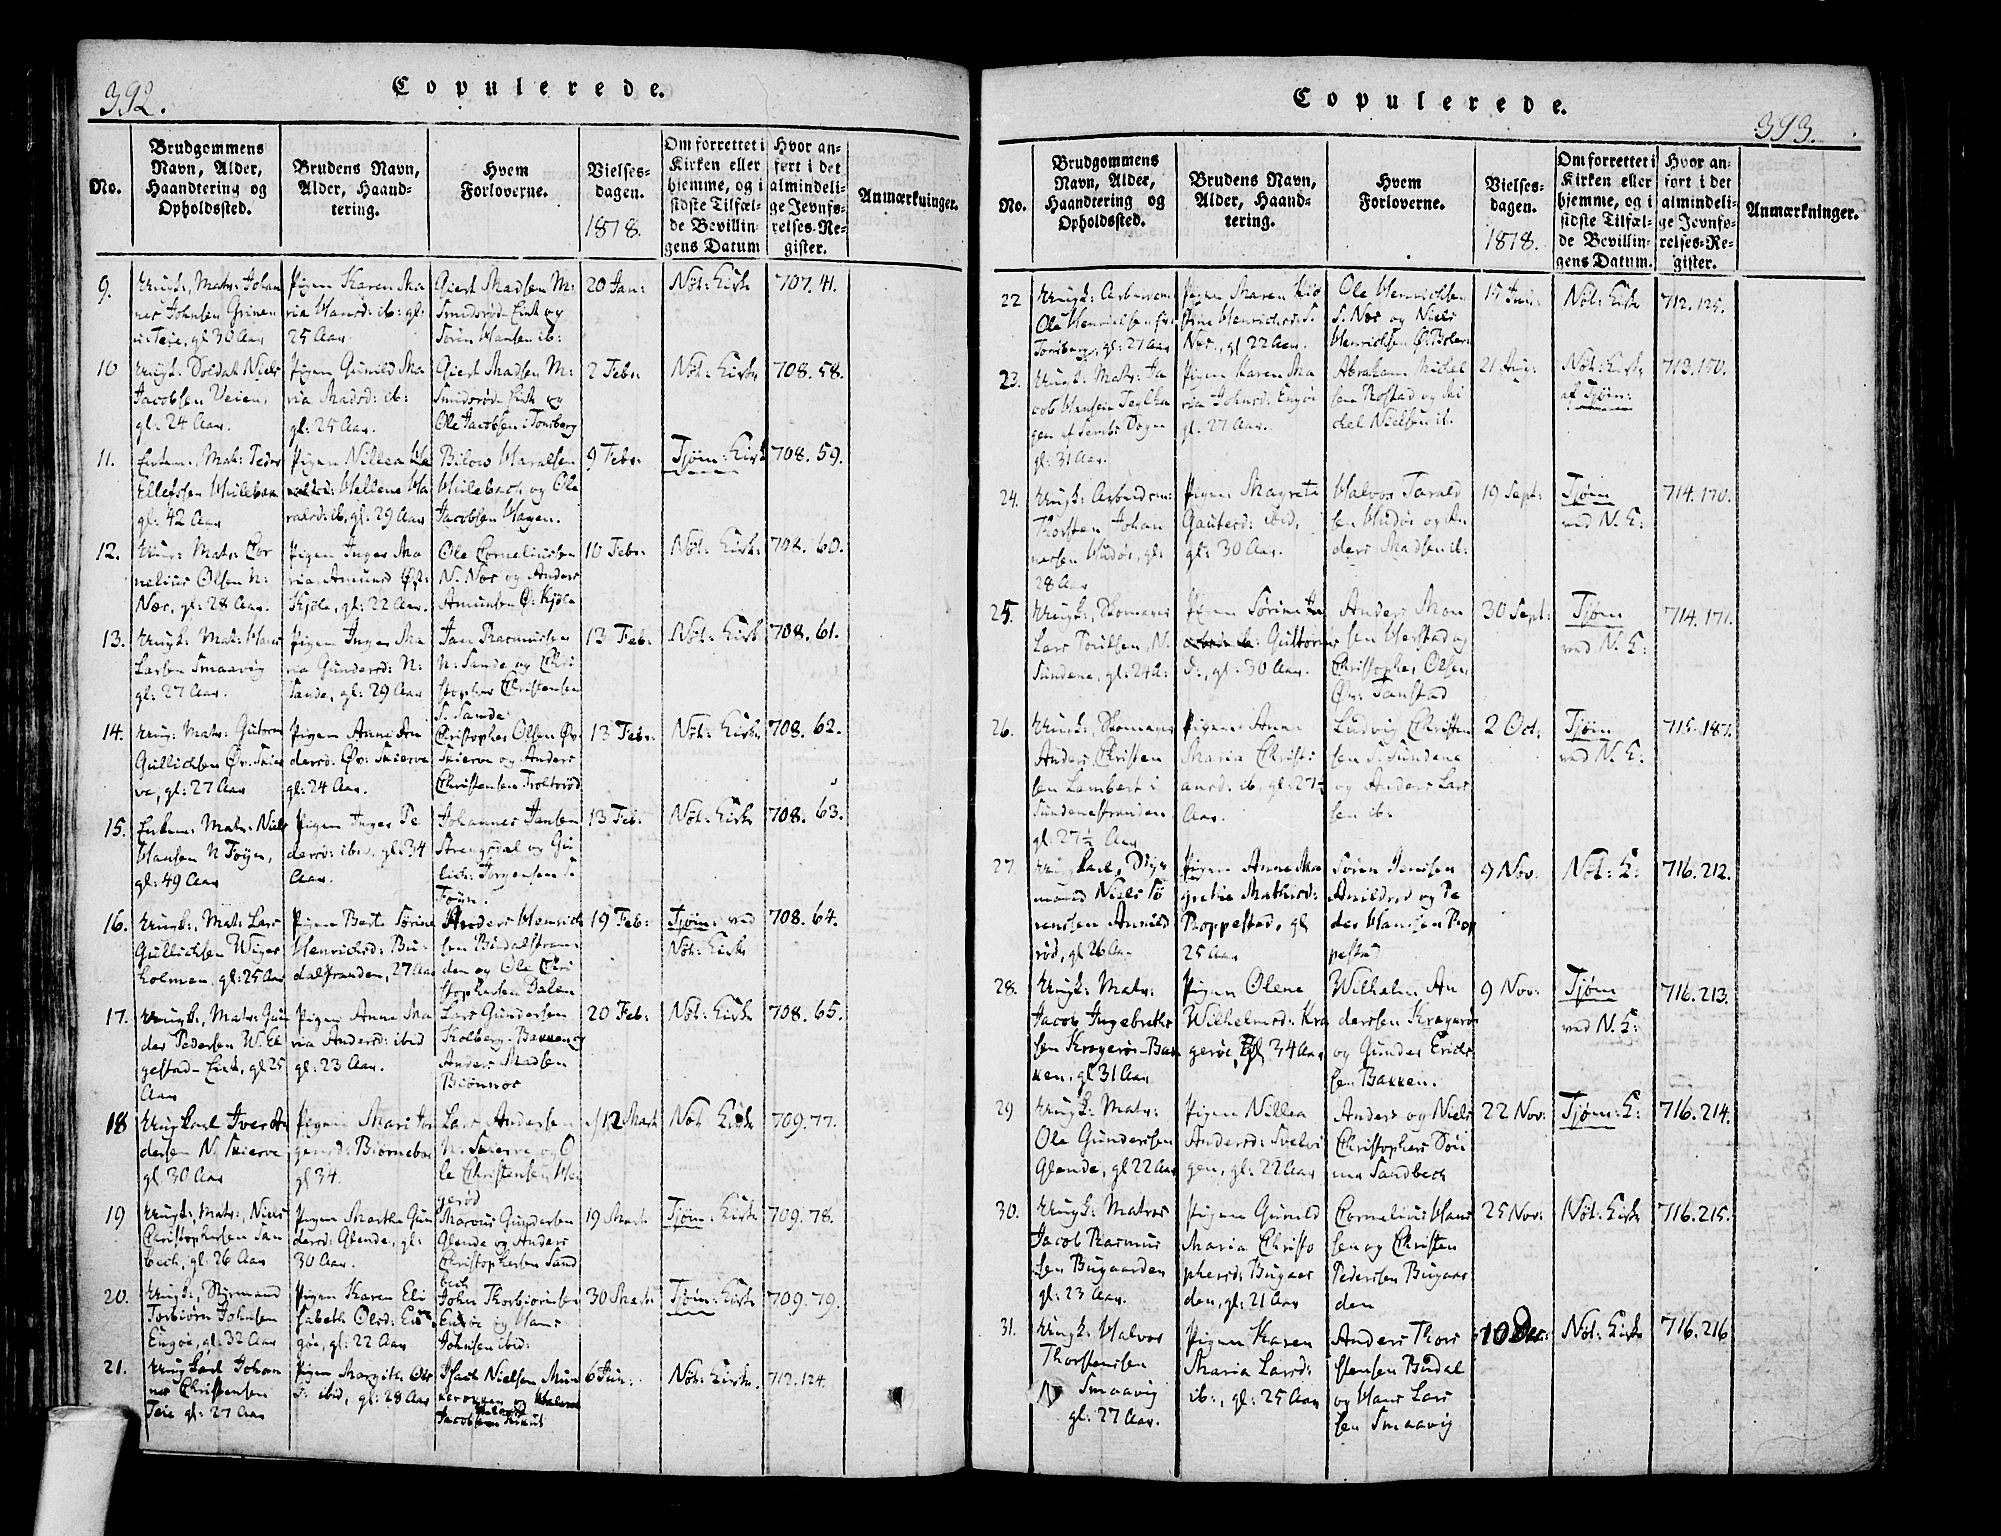 392.
Copulerede.
No.
Brudgommens Navn, Alder, Haandtering og Opholdssted.
Brudens Navn, Alder, Haandtering.
Hvem Forloverne.
Vielsesdagen.
1818.
Om forrettet i Kirken eller hjemme, og i sidste Tilfælde Bevillingens Datum
Hvor anført i det almindelige Jevnførelses-Register.
Anmærkninger.
9.
Johannes Johnsen
gl. 30 Aar
Pigen Karen Maria Hansd: ib: gl: 25 Aar.
Giert Madsen
Smidsrød Eink og
Sören Hansen ib:
20 Jan:
Nöt: Kirke
707. 41.
10
Soldat Niels
Jacobsen Veien,
gl: 24 Aar.
Pigen Gunild Maria Madsd: ib:
gl: 25 Aar.
Giert Madsen
Smidsrød Eink og
Ole Jacobsen Tonsberg
2 Febr:
Nöt: Kirke
708. 58.
11.
Enkem. Matr: Peder
Ellefsen Hulebak
gl: 42 Aar
Pigen Nillea
Helene Haralsd: ib, gl: 29 Aar
Haralsen
Hulebach og Ole
Jacobsen Hagen.
9 Febr:
Tjöm: Kirke
708. 59.
12.
Matr: Cornelius Olsen N:
Næs, gl: 28 Aar.
Pigen Inger Maria Amund
Kjöla, gl: 22 Aar.
Ole Corneliussen
N. Næs og Anders
Amunsen Ö. Kjöla
10 Febr:
Nöt: Kirke
708. 60.
13.
Matr: Hans
Larsen Smaavig
gl: 27 Aar.
Pigen Inger Maria Gundersd: N:
Sande, gl: 29 Aar
Jan Rasmussen
N: Sande og Christopher Christensen
S. Sande
13 Feb:
Nöt: Kirke
708. 61.
14.
Matr: Gutorm
Gullichsen Öv. Skierve, gl: 27 Aar
Pigen Anne Andersd: Öv: Skierve
gl: 24 Aar.
Christopher Olsen Öv
Skierve og Anders
Christensen
13 Febr:
Nöt: Kirke
708. 62.
15.
Enkem: Matr: Niels
Hansen N Föyn,
gl: 49 Aar
Pigen Inger Pedersd: ibid, gl: 34
Aar.
Johannes Jansen
Strengsdal og Gulich: Jörgensen S
Föyn.
13 Feb:
Nöt: Kirke
708. 63.
16.
Matr: Lars
Gullichsen
holmen, gl: 25 Aar
Pigen Berte Sörine
Henrichsd: Budalstranden, 27 Aar
Anders Henrichsen Budalstranden og Ole Christophersen Dalen
19 Feb:
Tjöm: ved
Nöt: Kirke
708. 64.
17.
Matr: Gunder Pedersen
gl 25
Aar
Pigen Anne Maria Andersd: ibid
gl: 23 Aar.
Lars Gundersen
Kolberg-Bakken og
Anders Madsen
Biönnæs
20 Feb:
Nöt: Kirke
708. 65.
18
Ungkarl Iver Andersen N. Skierve
gl 30 Aar
Pigen Mari
Biörnebo
gl 34.
Lars Andersen
N: Skierve og Ole Christensen
12 Marts
Nöt Kirke
709. 77.
19
Matr:, Niels
Christophersen Sandbech, gl: 26 Aar
Pigen Marthe Gundersd: Glende, gl:
30 Aar.
Marcus Gundersen
Glende og Anders
Christophersen Sandbech
19 Marts
Tjöm: Kirke
709. 78.
20.
Styrmand
Torbiörn Johnsen
Engöe, gl: 32 Aar
Pigen Karen Elisabeth Olsd:
gl: 22 Aar
John Thorbiörnsen
og Hans
Johnsen ibid:
30 Marts
Tjöm: Kirke
709. 79.
21.
Ungkarl Johannes Christensen
Teie gl: 27 Aar
Pigen Margithe Ols
D: ibid, gl: 28 Aar
Isach Nielsen
6 Jun:
Nöt: Kirke.
712. 124.
Copulerede.
393.
No.
Brudgommens Navn, Alder, Haandtering og Opholdssted.
Brudens Navn, Alder, Haandtering.
Hvem Forloverne.
Vielsesdagen.
1818.
Om forrettet i Kirken eller hjemme, og i sidste Tilfælde Bevillingens Datum.
Hvor anført i det almindelige Jevnførelses-Register.
Anmærkninger.
22
Ole Henrichsen
Tonsberg, gl: 27 Aar
Pigen Maren Kirstine Henrichsd: S.
Næs, gl 22 Aar.
Ole Henrichsen
S. Næs og Niels
Henrichsen
15 Jun:
Nöt: Kirke
712. 125.
23.
Matr: Jacob Hansen
gl: 31 Aar.
Pigen Karen Maria Johnsd: Engöe
gl. 27 Aar.
Abraham Michelsen Rostad og Michel Nielsen ib.
21 Aug:
Nöt: Kirke
af Tjöm:
713. 150.
24.
Thorsten Johannessen Hudöe, gl:
28 Aar
Pigen Magrete
Gautersd: ibid,
gl: 30 Aar.
Halvor Taraldsen Hudöe og Anders Madsen ib:
19 Sept:
Tjöm
ved N. K:
714. 170.
25.
Lars Poulsen, N.
Sundene, gl: 24 A:
Pigen Sörine
Guttorms
D:, gl: 30 Aar.
Anders Monsen Herstad og
Christopher Olsen,
Öv: Tanstad
30 Sept:
Tjöm
ved N. K:
714. 171.
26.
Anders Christensen Lambert i
Sundenestranden
gl: 27½ Aar
Pigen Anne
Maria Christiansd: ib, gl: 27½
Aar.
Ludvig Christensen S. Sundene
og Anders Larsen ib.
2 Oct.
Tjöm
ved N. K:
715. 187.
27.
Niels Sörenssen Amildrød, gl 26 Aar
Pigen Anne Magrethe Mathisd:
Roppestad, gl
25 Aar.
Sören Jensen
Amildrød og Peder Hansen Roppestad
9 Nov.
Nöt: K:
716. 212.
28.
Ungk: Matr:
Jacob Ingebrethsen Kragerøe-Bakken, gl 31 Aar
Pigen Olene
Wilhelmsd: Kragerøe, gl 34 Aar
Wilhelm Anderssen Kragerøe
og Gunder Erichsen Bakken.
9 Nov:
Tjöm
ved N. K:
716. 213.
29
Ungk: Matr:
Ole Gundersen
Glende, gl 22 Aar
Pigen Nillea
Andersd: Svelvigen, gl: 22 Aar
Anders og Niels
Christophers Sönner Sandbech
22 Nov:
Tjöm: K:
716. 214.
30.
Ungk: Matros
Jacob Rasmussen Bugaarden
gl: 23 Aar.
Pigen Gunild
Maria Christophersd: Bugaarden, gl: 21 Aar
Cornelius Hansen og Christen
Pedersen Bugaarden
25 Nov:
Nöt: Kirke
716. 215.
31.
Ungk: Halvor
Thorstensen
Smaavig
gl: 27 Aar.
Pigen Karen
Maria Larsd:
ib:, gl: 25 Aar
Anders Thorstensen Budal
og Hans Larsen Smaavig
10 Dec:
Nöt: Kirke
716. 216